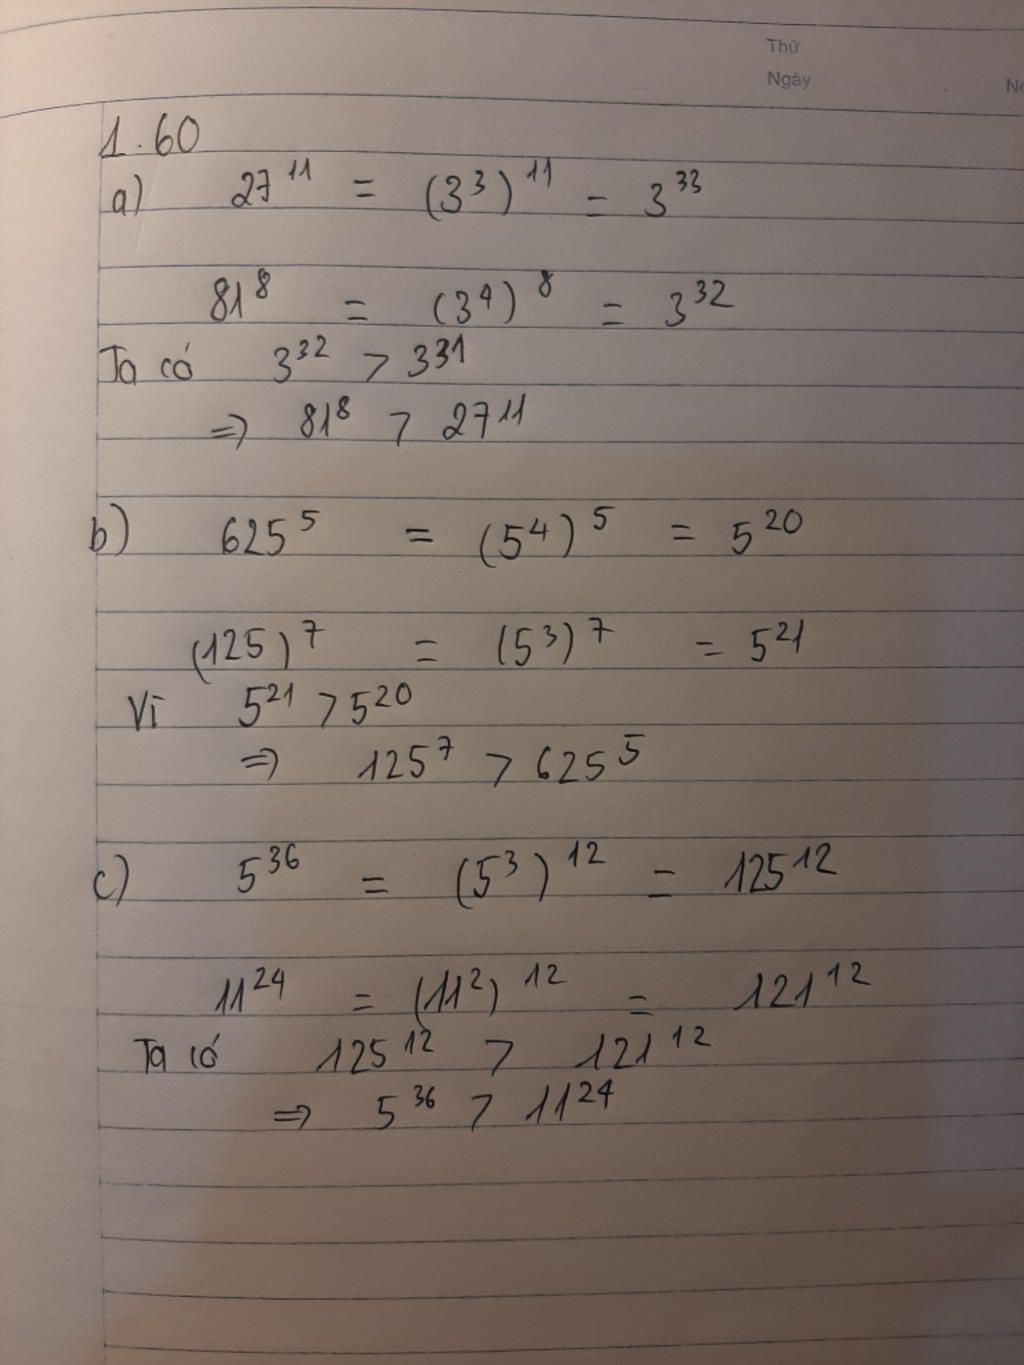 Thứ
Ngày
No
1.60
a) 27¹¹ = (3³)¹¹ = 3³³
81⁸ = (3⁴)⁸ = 3³²
Ta có 3³² > 3³¹
⇒ 81⁸ > 27¹¹
b) 625⁵ = (5⁴)⁵ = 5²⁰
(125)⁷ = (5³)⁷ = 5²¹
Vì 5²¹ > 5²⁰
⇒ 125⁷ > 625⁵
c) 5³⁶ = (5³)¹² = 125¹²
11²⁴ = (11²)¹² = 121¹²
Ta có 125¹² > 121¹²
⇒ 5³⁶ > 11²⁴